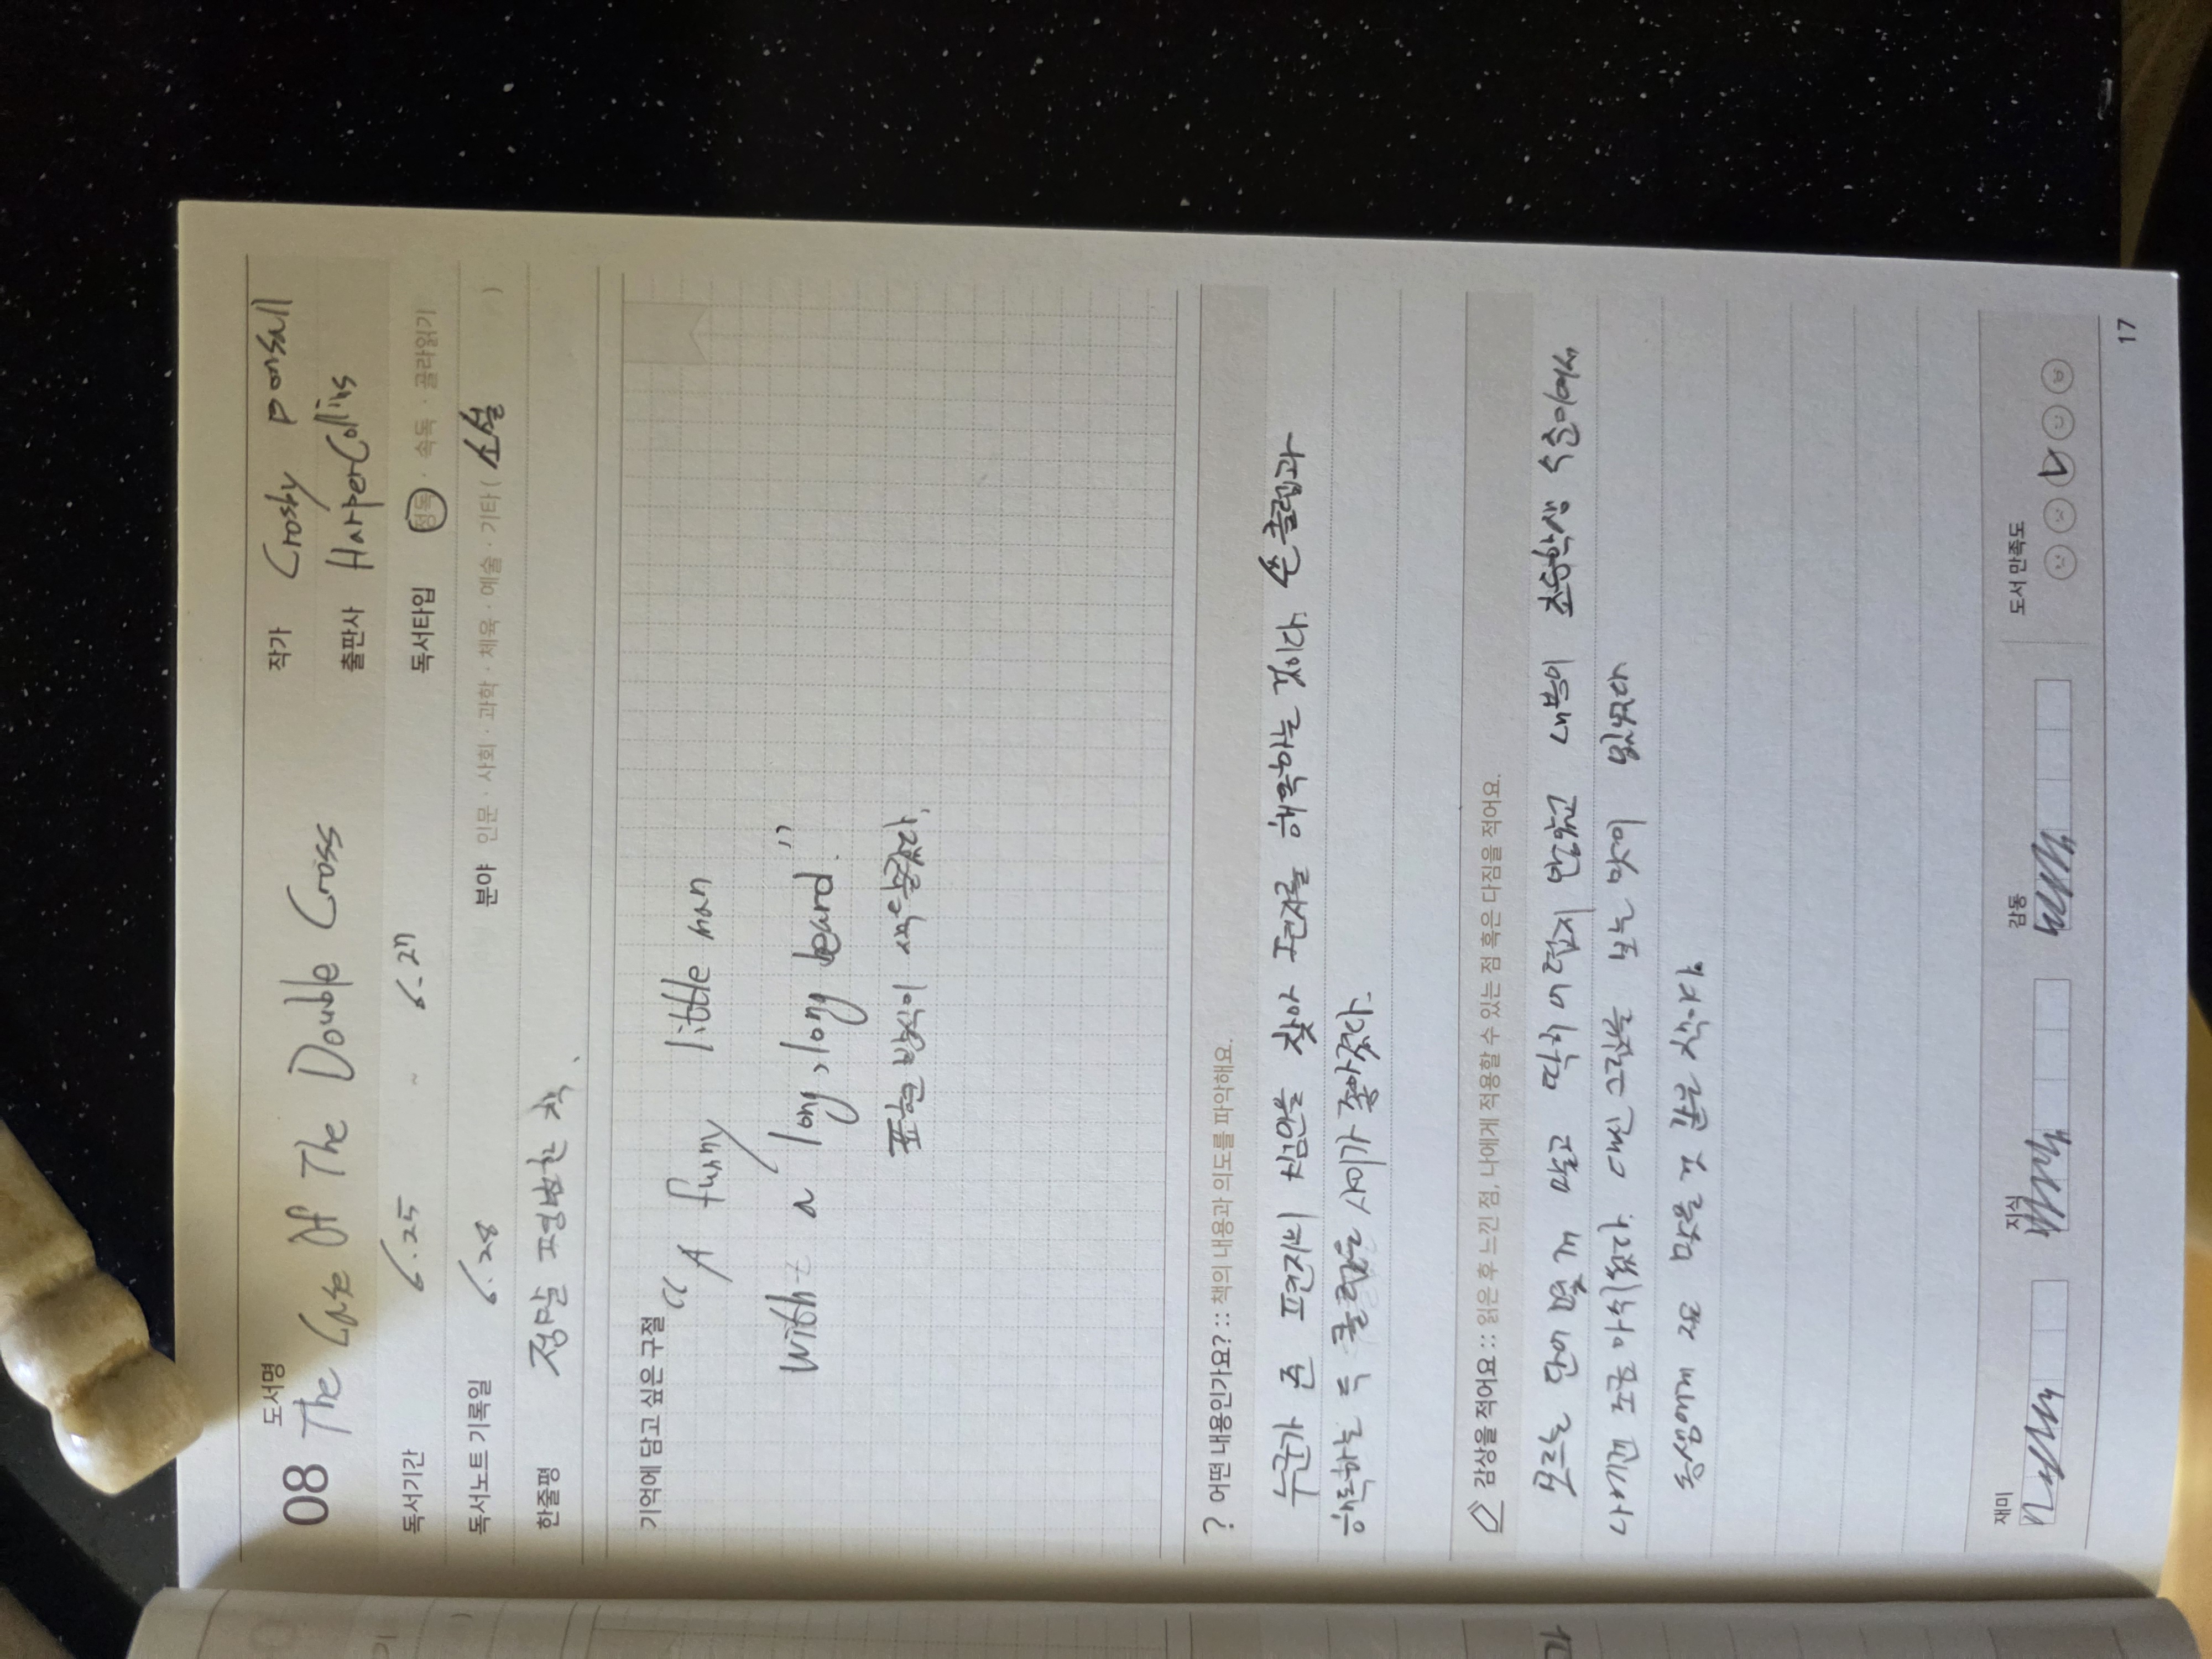 08 도서명 The Case Of The Double Cross 작가 Crosby Ponsall
출판사 HarperCollins
독서기간 6.25 ~ 6.27 독서타입 정독 · 속독 · 골라읽기
독서노트 기록일 6.28 분야 인문 · 사회 · 과학 · 체육 · 예술 · 기타 ( 소설 )
한줄평 정말 평범한 책.
기억에 담고 싶은 구절
“A funny little man
with a long, long beard.”
표현 방식이 색달랐다.
? 어떤 내용인가요? :: 책의 내용과 의도를 파악해요.
누군가 준 편지의 치임을 찾아 편지를 해독하는 것이다. 쓴 클럽과
해독하는 클럽 사이가 좋아졌다.
감상을 적어요 :: 읽은 후 느낀 점, 나에게 적용할 수 있는 점 혹은 다짐을 적어요.
모르는 단어 몇 개 말고 딱히 어렵지 않았고 내용이 초등학생 수준이어서
나에겐 조금 아쉬웠다. 대신 그림을 보는 맛이 있었다
동생에게 딱 맞을 것 같은 책이다
재미 지식 감동 도서 만족도
17